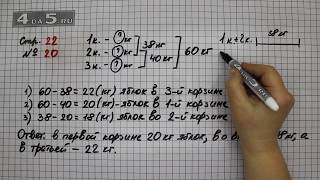 4 DA 5.RU
Стр. 22
№ 20
1 к. - ? кг
2 к. - ? кг
3 к. - ? кг
38 кг
40 кг
60 кг
1 к + 2 к.
38 кг
1) 60 - 38 = 22 (кг) яблок в 3-й корзине
2) 60 - 40 = 20 (кг) - яблок в 1-й корзине
3) 38 - 20 = 18 (кг) яблок во 2-й корзине
Ответ: в первой корзине 20 кг яблок, во а
в третьей - 22 кг.